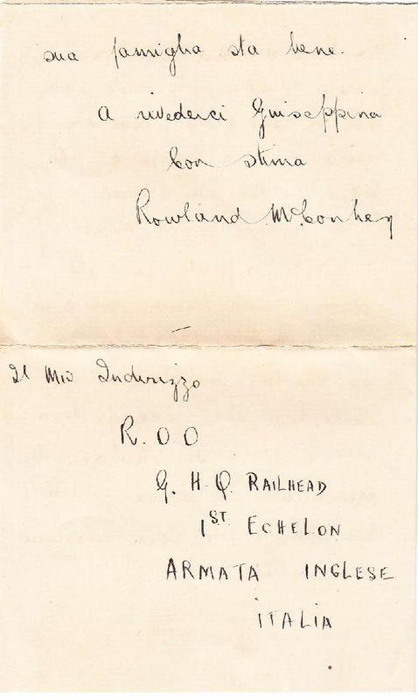 sua famiglia sta bene.
A rivederci Guiseppina
Con stima
Rowland McConkey
Il Mio Inderizzo
R. O O
G. H. Q. RAILHEAD
1ST ECHELON
ARMATA INGLESE
ITALIA